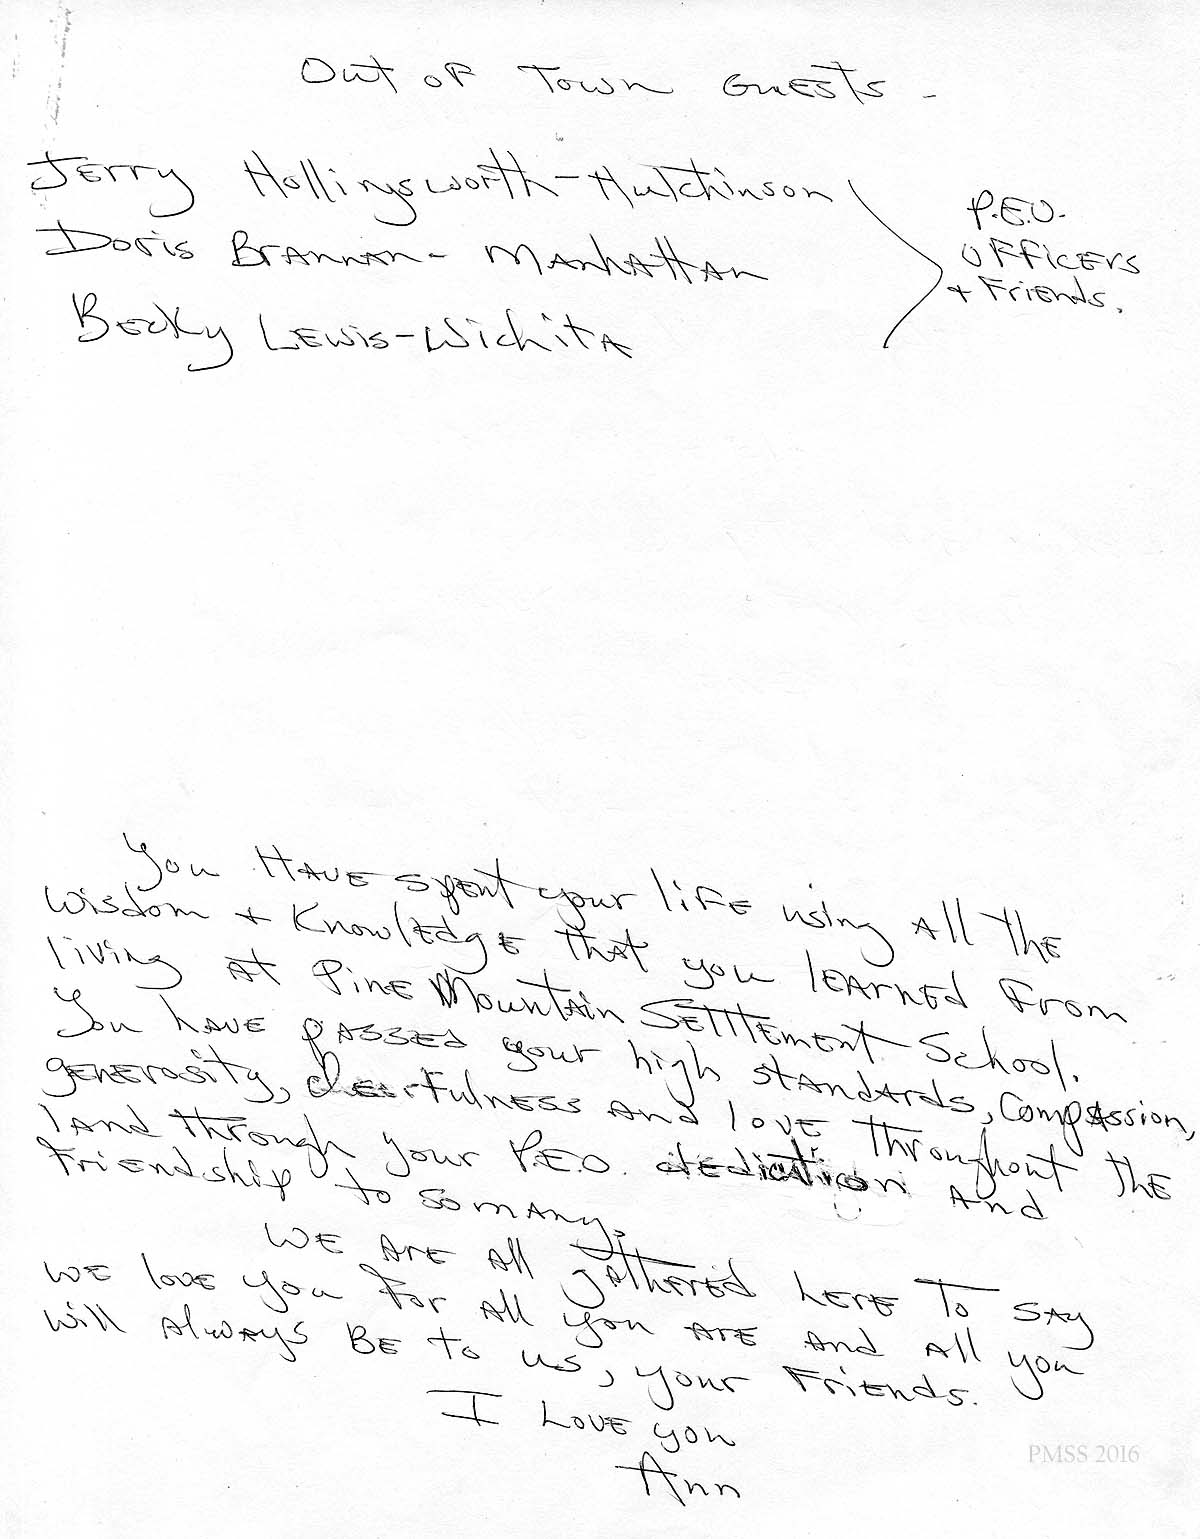 Out of Town Guests -
Jerry Hollingsworth - Hutchinson
Doris Brannan - Manhattan
Becky Lewis - Wichita
P.E.O.
Officers
+ Friends.
You have spent your life using all the
wisdom + knowledge that you learned from
living at Pine Mountain Settlement School.
You have passed your high standards, compassion,
generosity, cheerfulness and love throughout the
land through your P.E.O. dedication and
friendship to so many.
We are all gathered here to say
we love you for all you are and all you
will always be to us, your friends.
I love you
Ann
PMSS 2016